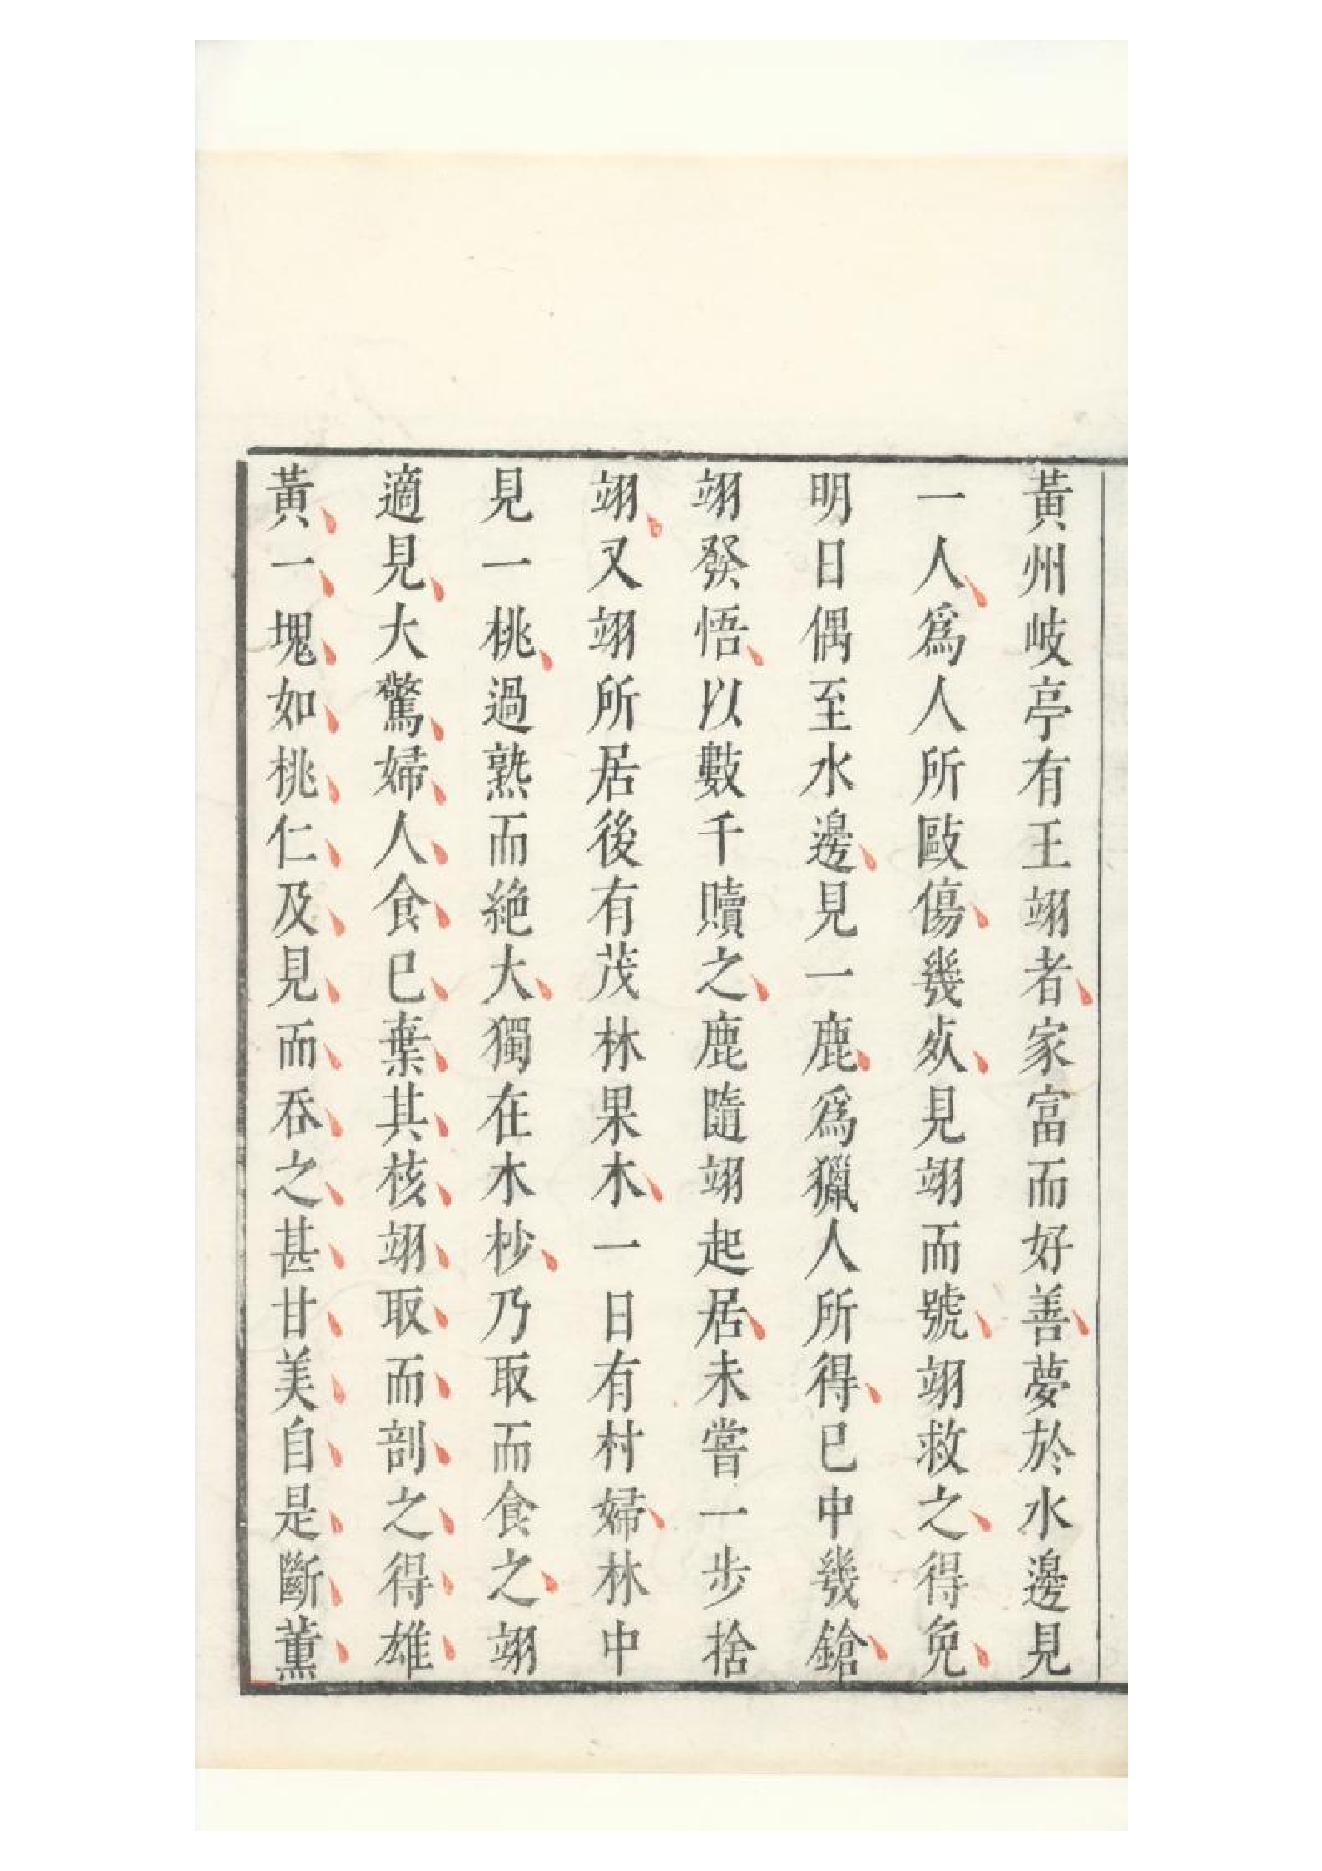 黃州岐亭有王翊者家富而好善夢於水邊見
一人為人所毆傷幾死見翊而號翊救之得免
明日偶至水邊見一鹿為獵人所得已中幾鎗
翊發悟以數千贖之鹿隨翊起居未嘗一步捨
翊又翊所居後有茂林果木一日有村婦林中
見一桃過熟而絶大獨在木杪乃取而食之翊
適見大驚婦人食已棄其核翊取而剖之得雄
黃一塊如桃仁及見而吞之甚甘美自是斷葷